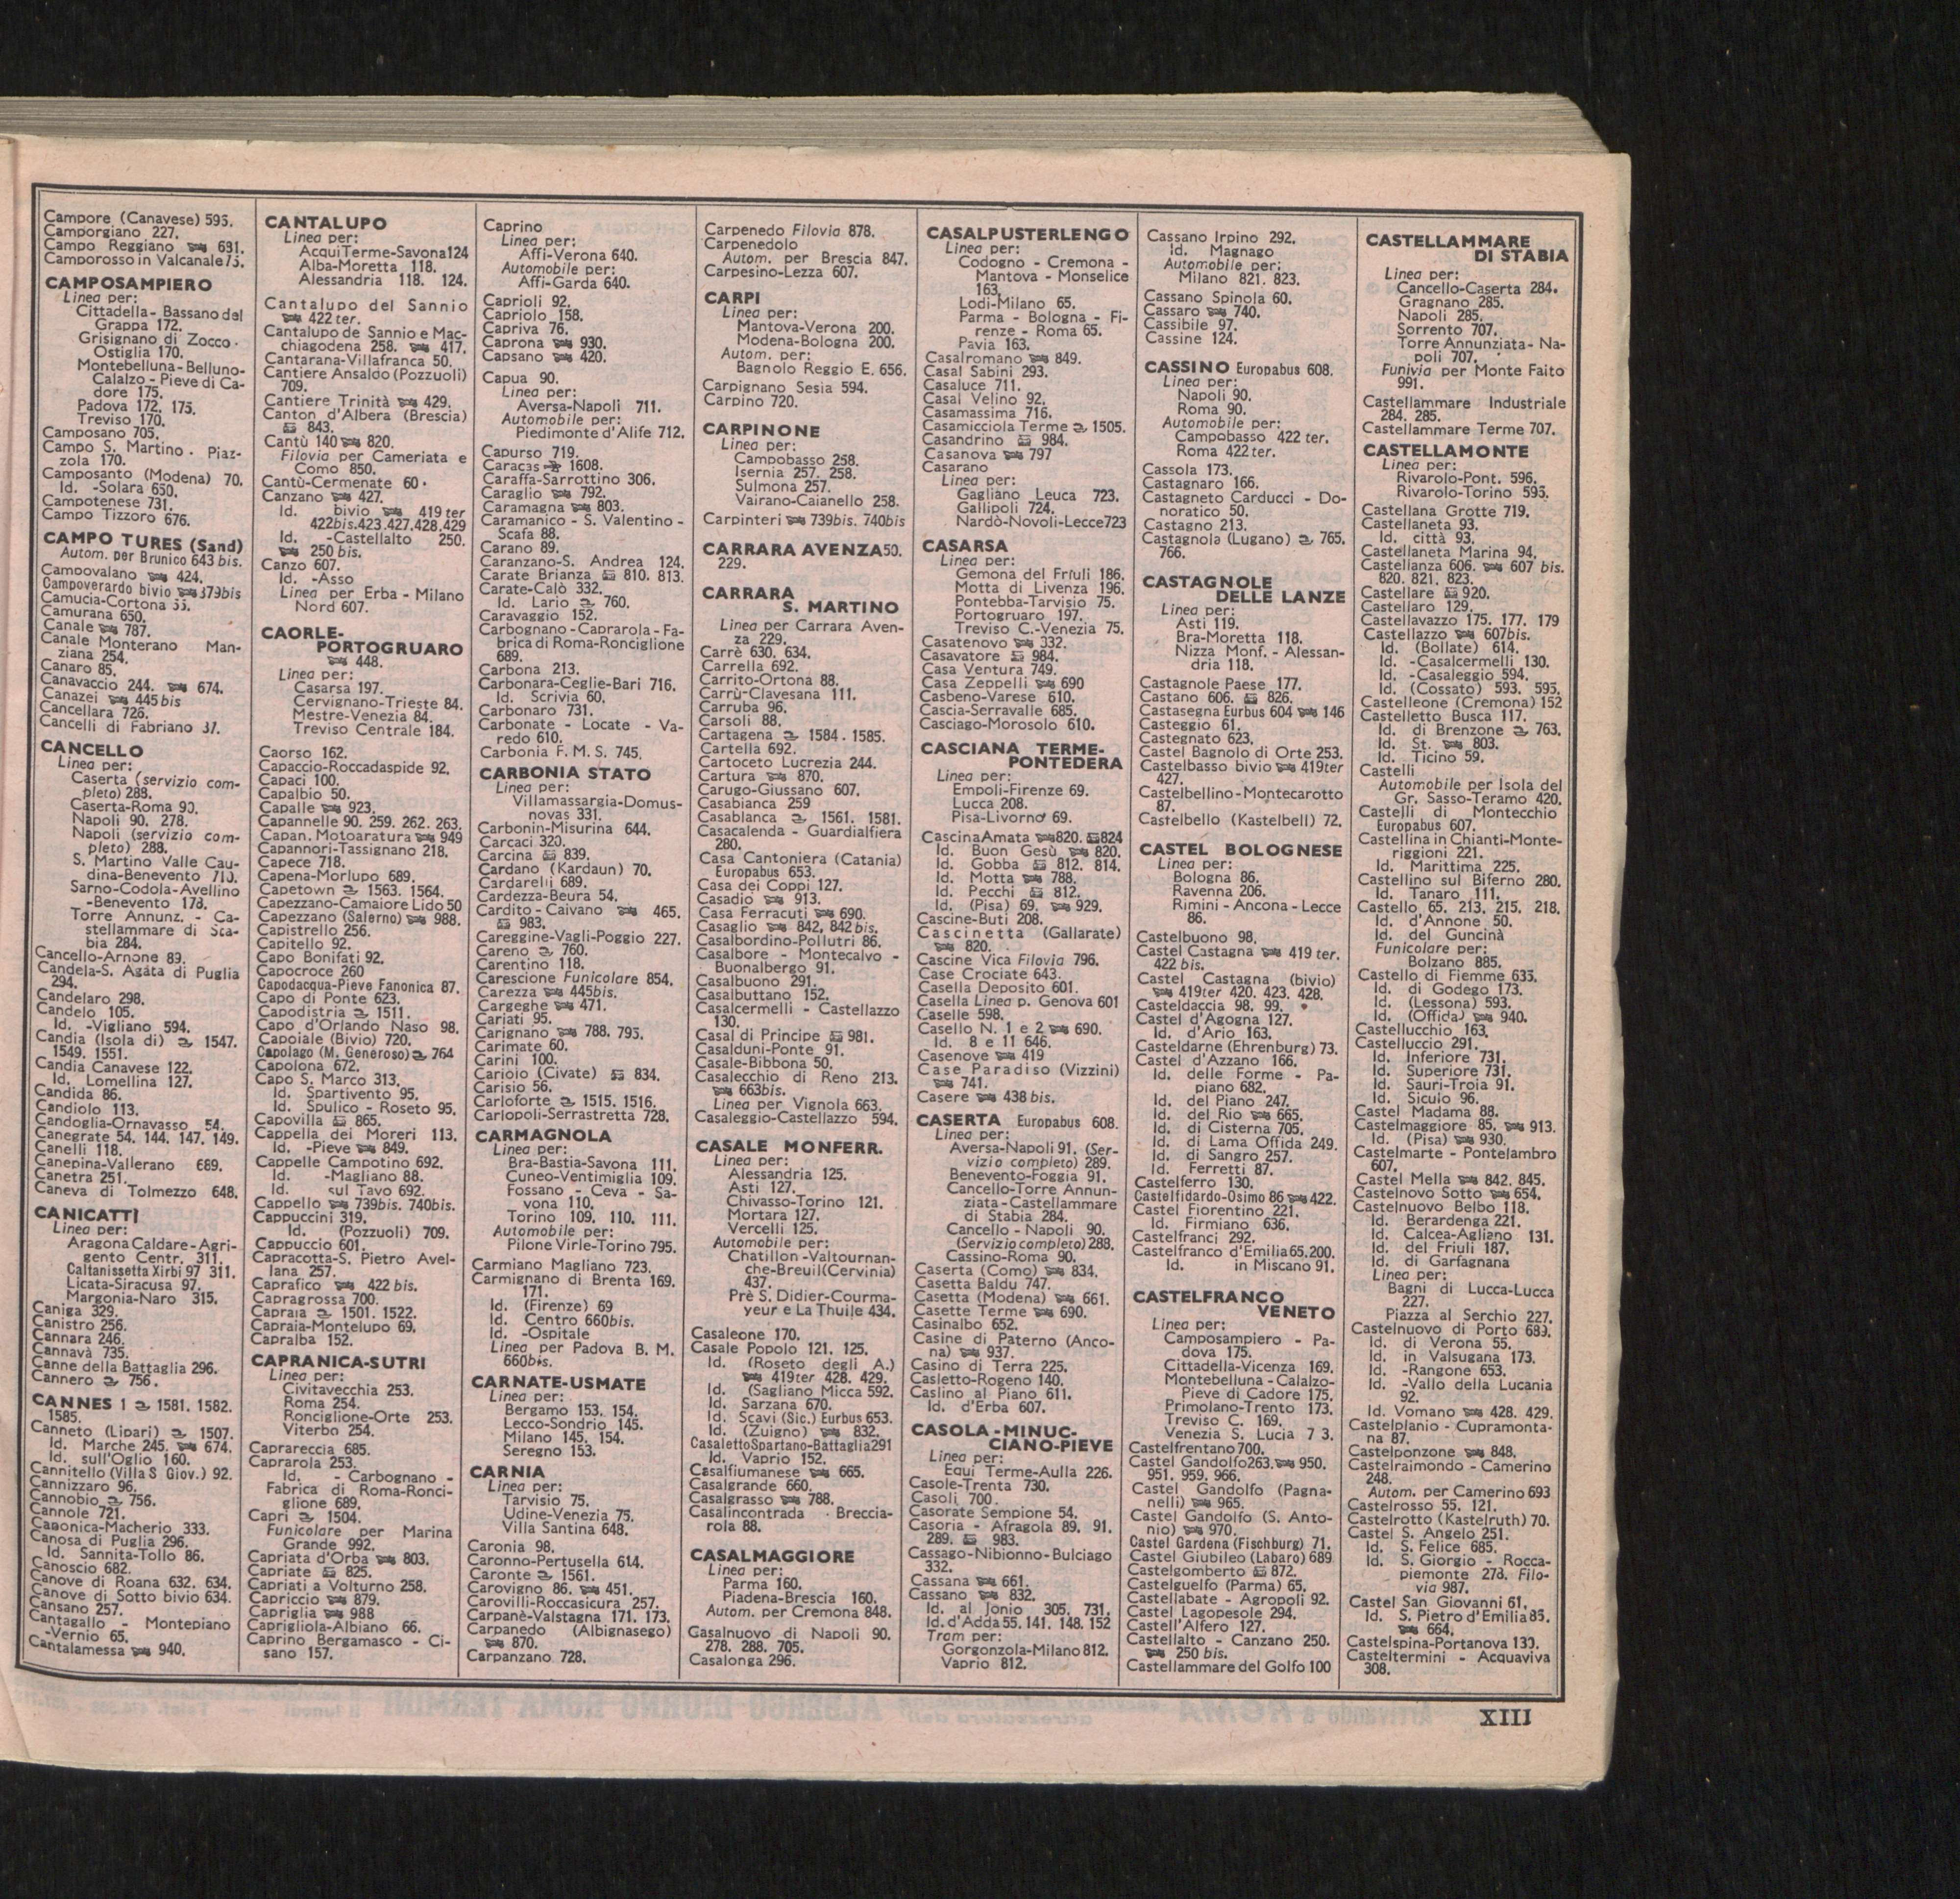 Campore (Canavese) 595.
Camporgiano 227.
Campo Reggiano 691.
Camporosso in Valcanale 75.
CAMPOSAMPIERO
Linea per:
Cittadella - Bassano del
Grappa 172.
Grisignano di Zocco -
Ostiglia 170.
Montebelluna - Belluno-
Calalzo - Pieve di Ca-
dore 175.
Padova 172. 175.
Treviso 170.
Camposano 705.
Campo S. Martino - Piaz-
zola 170.
Camposanto (Modena) 70.
Id. -Solara 650.
Campotenese 731.
Campo Tizzoro 676.
CAMPO TURES (Sand)
Autom. per Brunico 643 bis.
Campovalano 424.
Campoverardo bivio 379bis
Camucia-Cortona 55.
Camurana 650.
Canale 787.
Canale Monterano Man-
ziana 254.
Canaro 85.
Canavaccio 244. 674.
Canazei 445 bis
Cancellara 726.
Cancelli di Fabriano 87.
CANCELLO
Linea per:
Caserta (servizio com-
pleto) 288.
Caserta-Roma 90.
Napoli 90. 278.
Napoli (servizio com-
pleto) 288.
S. Martino Valle Cau-
dina-Benevento 710.
Sarno-Codola-Avellino
-Benevento 178.
Torre Annunz. - Ca-
stellammare di Sta-
bia 284.
Cancello-Arnone 89.
Candela-S. Agata di Puglia
294.
Candelaro 298.
Candelo 105.
Id. -Vigliano 594.
Candia (Isola di) 1547.
1549. 1551.
Candia Canavese 122.
Id. Lomellina 127.
Candida 86.
Candiolo 113.
Candoglia-Ornavasso 54.
Canegrate 54. 144. 147. 149.
Canelli 118.
Canepina-Vallerano 689.
Canetra 251.
Caneva di Tolmezzo 648.
CANICATTÌ
Linea per:
Aragona Caldare-Agri-
gento Centr. 311.
Caltanissetta Xirbi 97 311.
Licata-Siracusa 97.
Margonia-Naro 315.
Caniga 329.
Canistro 256.
Cannara 246.
Cannavà 735.
Canne della Battaglia 296.
Cannero 756.
CANNES 1 1581. 1582.
1585.
Canneto (Lipari) 1507.
Id. Marche 245. 674.
Id. sull'Oglio 160.
Cannitello (Villa S Giov.) 92.
Cannizzaro 96.
Cannobio 756.
Cannole 721.
Canonica-Macherio 333.
Canosa di Puglia 296.
Id. Sannita-Tollo 86.
Canoscio 682.
Canove di Roana 632. 634.
Canove di Sotto bivio 634.
Cansano 257.
Cantagallo - Montepiano
-Vernio 65.
Cantalamessa 940.
CANTALUPO
Linea per:
Acqui Terme-Savona 124
Alba-Moretta 118.
Alessandria 118. 124.
Cantalupo del Sannio
422 ter.
Cantalupo de Sannio e Mac-
chiagodena 258. 417.
Cantarana-Villafranca 50.
Cantiere Ansaldo (Pozzuoli)
709.
Cantiere Trinità 429.
Canton d'Albera (Brescia)
843.
Cantù 140 820.
Filovia per Cameriata e
Como 850.
Cantù-Cermenate 60.
Canzano 427.
Id. bivio 419 ter
422bis.423.427.428.429
Id. -Castellalto 250.
250 bis.
Canzo 607.
Id. -Asso
Linea per Erba - Milano
Nord 607.
CAORLE-
PORTOGRUARO
448.
Linea per:
Casarsa 197.
Cervignano-Trieste 84.
Mestre-Venezia 84.
Treviso Centrale 184.
Caorso 162.
Capaccio-Roccadaspide 92.
Capaci 100.
Capalbio 50.
Capalle 923.
Capannelle 90. 259. 262. 263.
Capan. Motoaratura 949
Capannori-Tassignano 218.
Capece 718.
Capena-Morlupo 689.
Capetown 1563. 1564.
Capezzano-Camaiore Lido 50
Capezzano (Salerno) 988.
Capistrello 256.
Capitello 92.
Capo Bonifati 92.
Capocroce 260
Capodacqua-Pieve Fanonica 87.
Capo di Ponte 623.
Capodistria 1511.
Capo d'Orlando Naso 98.
Capoiale (Bivio) 720.
Capolago (M. Generoso) 764
Capolona 672.
Capo S. Marco 313.
Id. Spartivento 95.
Id. Spulico - Roseto 95.
Capovilla 865.
Cappella dei Moreri 113.
Id. -Pieve 849.
Cappelle Campotino 692.
Id. -Magliano 88.
Id. sul Tavo 692.
Cappello 739bis. 740bis.
Cappuccini 319.
Id. (Pozzuoli) 709.
Cappuccio 601.
Capracotta-S. Pietro Avel-
lana 257.
Caprafico 422 bis.
Capragrossa 700.
Capraia 1501. 1522.
Capraia-Montelupo 69.
Capralba 152.
CAPRANICA-SUTRI
Linea per:
Civitavecchia 253.
Roma 254.
Ronciglione-Orte 253.
Viterbo 254.
Caprareccia 685.
Caprarola 253.
Id. - Carbognano -
Fabrica di Roma-Ronci-
glione 689.
Capri 1504.
Funicolare per Marina
Grande 992.
Capriata d'Orba 803.
Capriate 825.
Capriati a Volturno 258.
Capriccio 879.
Capriglia 988
Caprigliola-Albiano 66.
Caprino Bergamasco - Ci-
sano 157.
Caprino
Linea per:
Affi-Verona 640.
Automobile per:
Affi-Garda 640.
Caprioli 92.
Capriolo 158.
Capriva 76.
Caprona 930.
Capsano 420.
Capua 90.
Linea per:
Aversa-Napoli 711.
Automobile per:
Piedimonte d'Alife 712.
Capurso 719.
Caracas 1608.
Caraffa-Sarrottino 306.
Caraglio 792.
Caramagna 803.
Caramanico - S. Valentino -
Scafa 88.
Carano 89.
Caranzano-S. Andrea 124.
Carate Brianza 810. 813.
Carate-Calò 332.
Id. Lario 760.
Caravaggio 152.
Carbognano - Caprarola - Fa-
brica di Roma-Ronciglione
689.
Carbona 213.
Carbonara-Ceglie-Bari 716.
Id. Scrivia 60.
Carbonaro 731.
Carbonate - Locate - Va-
redo 610.
Carbonia F. M. S. 745.
CARBONIA STATO
Linea per:
Villamassargia-Domus-
novas 331.
Carbonin-Misurina 644.
Carcaci 320.
Carcina 839.
Cardano (Kardaun) 70.
Cardarelli 689.
Cardezza-Beura 54.
Cardito - Caivano 465.
983.
Careggine-Vagli-Poggio 227.
Careno 760.
Carentino 118.
Carescione Funicolare 854.
Carezza 445bis.
Cargeghe 471.
Cariati 95.
Carignano 788. 795.
Carimate 60.
Carini 100.
Carioio (Civate) 834.
Carisio 56.
Carloforte 1515. 1516.
Carlopoli-Serrastretta 728.
CARMAGNOLA
Linea per:
Bra-Bastia-Savona 111.
Cuneo-Ventimiglia 109.
Fossano - Ceva - Sa-
vona 110.
Torino 109. 110. 111.
Automobile per:
Pilone Virle-Torino 795.
Carmiano Magliano 723.
Carmignano di Brenta 169.
171.
Id. (Firenze) 69
Id. Centro 660bis.
Id. -Ospitale
Linea per Padova B. M.
660bis.
CARNATE-USMATE
Linea per:
Bergamo 153. 154.
Lecco-Sondrio 145.
Milano 145. 154.
Seregno 153.
CARNIA
Linea per:
Tarvisio 75.
Udine-Venezia 75.
Villa Santina 648.
Caronia 98.
Caronno-Pertusella 614.
Caronte 1561.
Carovigno 86. 451.
Carovilli-Roccasicura 257.
Carpanè-Valstagna 171. 173.
Carpanedo (Albignasego)
870.
Carpanzano 728.
Carpenedo Filovia 878.
Carpenedolo
Autom. per Brescia 847.
Carpesino-Lezza 607.
CARPI
Linea per:
Mantova-Verona 200.
Modena-Bologna 200.
Autom. per:
Bagnolo Reggio E. 656.
Carpignano Sesia 594.
Carpino 720.
CARPINONE
Linea per:
Campobasso 258.
Isernia 257. 258.
Sulmona 257.
Vairano-Caianello 258.
Carpinteri 739bis. 740bis
CARRARA AVENZA 50.
229.
CARRARA
S. MARTINO
Linea per Carrara Aven-
za 229.
Carrè 630. 634.
Carrella 692.
Carrito-Ortona 88.
Carrù-Clavesana 111.
Carruba 96.
Carsoli 88.
Cartagena 1584. 1585.
Cartella 692.
Cartoceto Lucrezia 244.
Cartura 870.
Carugo-Giussano 607.
Casabianca 259
Casablanca 1561. 1581.
Casacalenda - Guardialfiera
280.
Casa Cantoniera (Catania)
Europabus 653.
Casa dei Coppi 127.
Casadio 913.
Casa Ferracuti 690.
Casaglio 842. 842 bis.
Casalbordino-Pollutri 86.
Casalbore - Montecalvo -
Buonalbergo 91.
Casalbuono 291.
Casalbuttano 152.
Casalcermelli - Castellazzo
130.
Casal di Principe 981.
Casalduni-Ponte 91.
Casale-Bibbona 50.
Casalecchio di Reno 213.
663bis.
Linea per Vignola 663.
Casaleggio-Castellazzo 594.
CASALE MONFERR.
Linea per:
Alessandria 125.
Asti 127.
Chivasso-Torino 121.
Mortara 127.
Vercelli 125.
Automobile per:
Chatillon - Valtournan-
che-Breuil (Cervinia)
437.
Prè S. Didier-Courma-
yeur e La Thuile 434.
Casaleone 170.
Casale Popolo 121. 125.
Id. (Roseto degli A.)
419ter 428. 429.
Id. (Sagliano Micca 592.
Id. Sarzana 670.
Id. Scavi (Sic.) Eurbus 653.
Id. (Zuigno) 832.
Casaletto Spartano-Battaglia 291
Id. Vaprio 152.
Casalfiumanese 665.
Casalgrande 660.
Casalgrasso 788.
Casalincontrada - Breccia-
rola 88.
CASALMAGGIORE
Linea per:
Parma 160.
Piadena-Brescia 160.
Autom. per Cremona 848.
Casalnuovo di Napoli 90.
278. 288. 705.
Casalonga 296.
CASALPUSTERLENGO
Linea per:
Codogno - Cremona -
Mantova - Monselice
163.
Lodi-Milano 65.
Parma - Bologna - Fi-
renze - Roma 65.
Pavia 163.
Casalromano 849.
Casal Sabini 293.
Casaluce 711.
Casal Velino 92.
Casamassima 716.
Casamicciola Terme 1505.
Casandrino 984.
Casanova 797
Casarano
Linea per:
Gagliano Leuca 723.
Gallipoli 724.
Nardò-Novoli-Lecce 723
CASARSA
Linea per:
Gemona del Friuli 186.
Motta di Livenza 196.
Pontebba-Tarvisio 75.
Portogruaro 197.
Treviso C.-Venezia 75.
Casatenovo 332.
Casavatore 984.
Casa Ventura 749.
Casa Zeppelli 690
Casbeno-Varese 610.
Cascia-Serravalle 685.
Casciago-Morosolo 610.
CASCIANA TERME-
PONTEDERA
Linea per:
Empoli-Firenze 69.
Lucca 208.
Pisa-Livorno 69.
Cascina Amata 820. 824
Id. Buon Gesù 820.
Id. Gobba 812. 814.
Id. Motta 788.
Id. Pecchi 812.
Id. (Pisa) 69. 929.
Cascine-Buti 208.
Cascinetta (Gallarate)
820.
Cascine Vica Filovia 796.
Case Crociate 643.
Casella Deposito 601.
Casella Linea p. Genova 601
Caselle 598.
Casello N. 1 e 2 690.
Id. 8 e 11 646.
Casenove 419
Case Paradiso (Vizzini)
741.
Casere 438 bis.
CASERTA Europabus 608.
Linea per:
Aversa-Napoli 91. (Ser-
vizio completo) 289.
Benevento-Foggia 91.
Cancello-Torre Annun-
ziata - Castellammare
di Stabia 284.
Cancello - Napoli 90.
(Servizio completo) 288.
Cassino-Roma 90.
Caserta (Como) 834.
Casetta Baldu 747.
Casetta (Modena) 661.
Casette Terme 690.
Casinalbo 652.
Casine di Paterno (Anco-
na) 937.
Casino di Terra 225.
Casletto-Rogeno 140.
Caslino al Piano 611.
Id. d'Erba 607.
CASOLA - MINUC-
CIANO-PIEVE
Linea per:
Equi Terme-Aulla 226.
Casole-Trenta 730.
Casoli 700.
Casorate Sempione 54.
Casoria - Afragola 89. 91.
289. 983.
Cassago-Nibionno-Bulciago
332.
Cassana 661.
Cassano 832.
Id. al Jonio 305. 731.
Id. d'Adda 55. 141. 148. 152
Tram per:
Gorgonzola-Milano 812.
Vaprio 812.
Cassano Irpino 292.
Id. Magnago
Automobile per:
Milano 821. 823.
Cassano Spinola 60.
Cassaro 740.
Cassibile 97.
Cassine 124.
CASSINO Europabus 608.
Linea per:
Napoli 90.
Roma 90.
Automobile per:
Campobasso 422 ter.
Roma 422 ter.
Cassola 173.
Castagnaro 166.
Castagneto Carducci - Do-
noratico 50.
Castagno 213.
Castagnola (Lugano) 765.
766.
CASTAGNOLE
DELLE LANZE
Linea per:
Asti 119.
Bra-Moretta 118.
Nizza Monf. - Alessan-
dria 118.
Castagnole Paese 177.
Castano 606. 826.
Castasegna Eurbus 604 146
Casteggio 61.
Castegnato 623.
Castel Bagnolo di Orte 253.
Castelbasso bivio 419ter
427.
Castelbellino-Montecarotto
87.
Castelbello (Kastelbell) 72.
CASTEL BOLOGNESE
Linea per:
Bologna 86.
Ravenna 206.
Rimini - Ancona - Lecce
86.
Castelbuono 98.
Castel Castagna 419 ter.
422 bis.
Castel Castagna (bivio)
419ter 420. 423. 428.
Casteldaccia 98. 99.
Castel d'Agogna 127.
Id. d'Ario 163.
Casteldarne (Ehrenburg) 73.
Castel d'Azzano 166.
Id. delle Forme - Pa-
piano 682.
Id. del Piano 247.
Id. del Rio 665.
Id. di Cisterna 705.
Id. di Lama Offida 249.
Id. di Sangro 257.
Id. Ferretti 87.
Castelferro 130.
Castelfidardo-Osimo 86 422.
Castel Fiorentino 221.
Id. Firmiano 636.
Castelfranci 292.
Castelfranco d'Emilia 65. 200.
Id. in Miscano 91.
CASTELFRANCO
VENETO
Linea per:
Camposampiero - Pa-
dova 175.
Cittadella-Vicenza 169.
Montebelluna - Calalzo-
Pieve di Cadore 175.
Primolano-Trento 173.
Treviso C. 169.
Venezia S. Lucia 7 3.
Castelfrentano 700.
Castel Gandolfo 263. 950.
951. 959. 966.
Castel Gandolfo (Pagna-
nelli) 965.
Castel Gandolfo (S. Anto-
nio) 970.
Castel Gardena (Fischburg) 71.
Castel Giubileo (Labaro) 689
Castelgomberto 872.
Castelguelfo (Parma) 65.
Castellabate - Agropoli 92.
Castel Lagopesole 294.
Castell'Alfero 127.
Castellalto - Canzano 250.
250 bis.
Castellammare del Golfo 100
CASTELLAMMARE
DI STABIA
Linea per:
Cancello-Caserta 284.
Gragnano 285.
Napoli 285.
Sorrento 707.
Torre Annunziata - Na-
poli 707.
Funivia per Monte Faito
991.
Castellammare Industriale
284. 285.
Castellammare Terme 707.
CASTELLAMONTE
Linea per:
Rivarolo-Pont. 596.
Rivarolo-Torino 595.
Castellana Grotte 719.
Castellaneta 93.
Id. città 93.
Castellaneta Marina 94.
Castellanza 606. 607 bis.
820. 821. 823.
Castellare 920.
Castellaro 129.
Castellavazzo 175. 177. 179
Castellazzo 607bis.
Id. (Bollate) 614.
Id. -Casalcermelli 130.
Id. -Casaleggio 594.
Id. (Cossato) 593. 595.
Castelleone (Cremona) 152
Castelletto Busca 117.
Id. di Brenzone 763.
Id. St. 803.
Id. Ticino 59.
Castelli
Automobile per Isola del
Gr. Sasso-Teramo 420.
Castelli di Montecchio
Europabus 607.
Castellina in Chianti-Monte-
riggioni 221.
Id. Marittima 225.
Castellino sul Biferno 280.
Id. Tanaro 111.
Castello 65. 213. 215. 218.
Id. d'Annone 50.
Id. del Guncinà
Funicolare per:
Bolzano 885.
Castello di Fiemme 635.
Id. di Godego 173.
Id. (Lessona) 593.
Id. (Offida) 940.
Castellucchio 163.
Castelluccio 291.
Id. Inferiore 731.
Id. Superiore 731.
Id. Sauri-Troia 91.
Id. Siculo 96.
Castel Madama 88.
Castelmaggiore 85. 913.
Id. (Pisa) 930.
Castelmarte - Pontelambro
607.
Castel Mella 842. 845.
Castelnovo Sotto 654.
Castelnuovo Belbo 118.
Id. Berardenga 221.
Id. Calcea-Agliano 131.
Id. del Friuli 187.
Id. di Garfagnana
Linea per:
Bagni di Lucca-Lucca
227.
Piazza al Serchio 227.
Castelnuovo di Porto 689.
Id. di Verona 55.
Id. in Valsugana 173.
Id. -Rangone 653.
Id. -Vallo della Lucania
92.
Id. Vomano 428. 429.
Castelplanio - Cupramonta-
na 87.
Castelponzone 848.
Castelraimondo - Camerino
248.
Autom. per Camerino 693
Castelrosso 55. 121.
Castelrotto (Kastelruth) 70.
Castel S. Angelo 251.
Id. S. Felice 685.
Id. S. Giorgio - Rocca-
piemonte 278. Filo-
via 987.
Castel San Giovanni 61.
Id. S. Pietro d'Emilia 85.
664.
Castelspina-Portanova 130.
Casteltermini - Acquaviva
308.
XIII